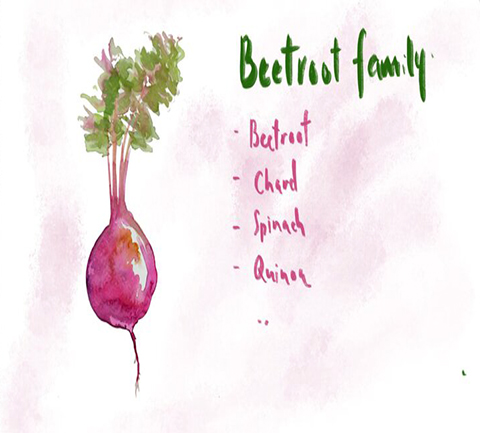 Beetroot family
- Beetroot
- Chard
- Spinach
- Quinoa
..